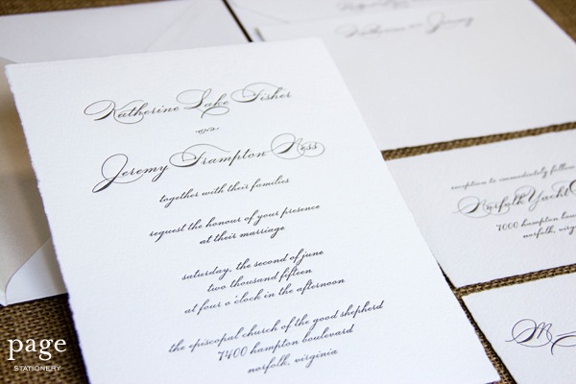 Katherine Lake Fisher
Jeremy Frampton Ness
together with their families
request the honour of your presence
at their marriage
saturday, the second of june
two thousand fifteen
at four o'clock in the afternoon
the episcopal church of the good shepherd
7400 hampton boulevard
norfolk, virginia
Katherine and Jeremy
reception to immediately follow
Norfolk Yacht
7000 hampton
norfolk, virg
M
page
STATIONERY